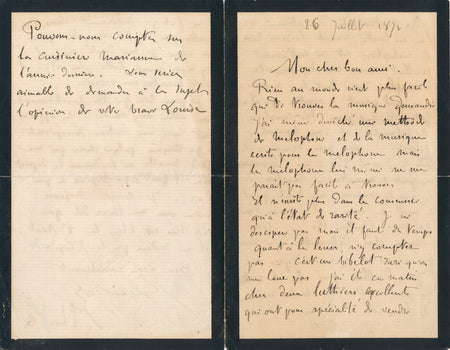 26 Juillet 1871
Mon cher bon ami.
Rien au monde n'est plus facil
que de trouver la musique demandée
j'ai même déniché une méthode
de mélophone et de la musique
écrite pour le mélophone mais
le mélophone lui même ne me
parait pas facil à trouver
Il n'existe plus dans le commerce
qu'à l'état de rareté. Je ne
désespère pas mais il faut du temps
quant à le louer n'y comptez
pas c'est un bibelot rare qu'on
ne loue pas j'ai été ce matin
chez deux luthiers excellents
qui ont pour spécialité de vendre
Pouvons-nous compter sur
la cuisinière Marianne de
l'année dernière.
aimable de demander à ce sujet
l'opinion de votre brave Louise